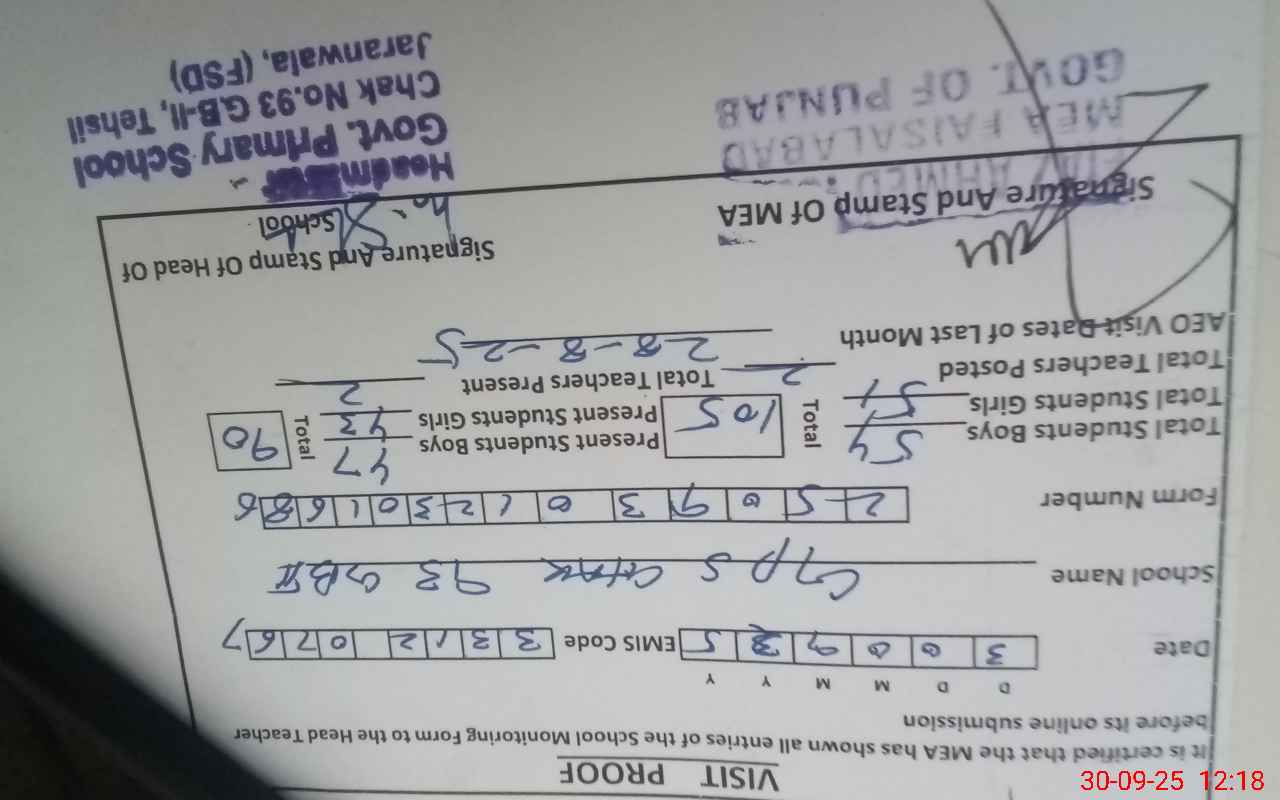 VISIT PROOF
It is certified that the MEA has shown all entries of the School Monitoring Form to the Head Teacher
before its online submission
D D M M Y Y
Date 3 0 0 9 2 5 EMIS Code 3 3 1 2 0 7 6 7
School Name GPS CHAK 93 GB II
Form Number 2 5 0 9 3 0 1 2 3 0 1 6 8 6
Total Students Boys 54 Total 105 Present Students Boys 47 Total 90
Total Students Girls 51 Present Students Girls 43
Total Teachers Posted 2 Total Teachers Present 2
AEO Visit Dates of Last Month 28-8-25
Signature And Stamp Of MEA
Signature And Stamp Of Head Of School
AHMED
MEA FAISALABAD
GOVT. OF PUNJAB
Headmaster
Govt. Primary School
Chak No.93 G.B-II, Tehsil
Jaranwala, (FSD)
30-09-25 12:18